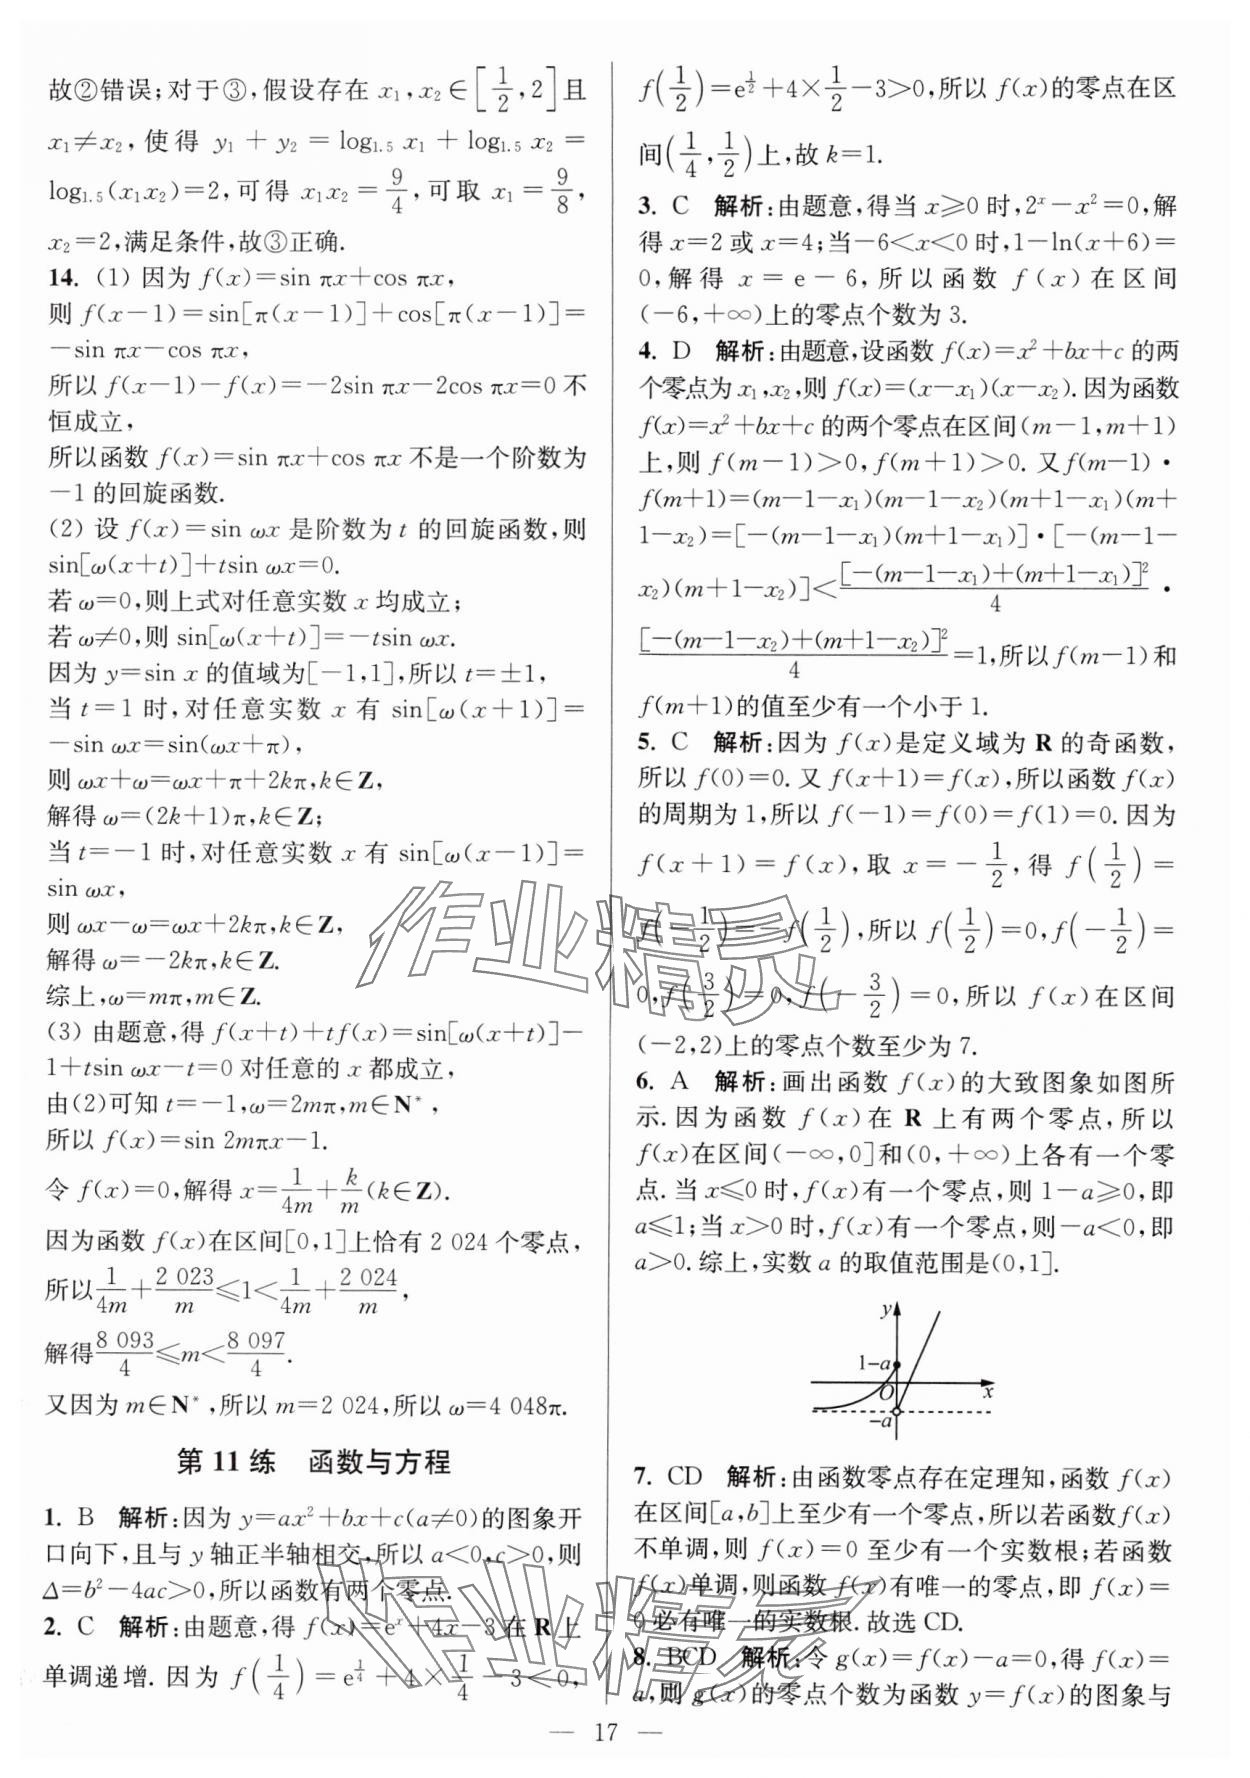 故②错误;对于③,假设存在 x₁,x₂∈[1/2,2]且
x₁≠x₂,使得 y₁+y₂=log₁.₅ x₁+log₁.₅ x₂=
log₁.₅(x₁x₂)=2,可得 x₁x₂=9/4,可取 x₁=9/8,
x₂=2,满足条件,故③正确.
14. (1) 因为 f(x)=sin πx+cos πx,
则 f(x-1)=sin[π(x-1)]+cos[π(x-1)]=
-sin πx-cos πx,
所以 f(x-1)-f(x)=-2sin πx-2cos πx=0 不
恒成立,
所以函数 f(x)=sin πx+cos πx 不是一个阶数为
-1 的回旋函数.
(2) 设 f(x)=sin ωx 是阶数为 t 的回旋函数,则
sin[ω(x+t)]+tsin ωx=0.
若 ω=0,则上式对任意实数 x 均成立;
若 ω≠0,则 sin[ω(x+t)]=-tsin ωx.
因为 y=sin x 的值域为[-1,1],所以 t=±1,
当 t=1 时,对任意实数 x 有 sin[ω(x+1)]=
-sin ωx=sin(ωx+π),
则 ωx+ω=ωx+π+2kπ,k∈Z,
解得 ω=(2k+1)π,k∈Z;
当 t=-1 时,对任意实数 x 有 sin[ω(x-1)]=
sin ωx,
则 ωx-ω=ωx+2kπ,k∈Z,
解得 ω=-2kπ,k∈Z.
综上,ω=mπ,m∈Z.
(3) 由题意,得 f(x+t)+tf(x)=sin[ω(x+t)]-
1+tsin ωx-t=0 对任意的 x 都成立,
由(2)可知 t=-1,ω=2mπ,m∈N*,
所以 f(x)=sin 2mπx-1.
令 f(x)=0,解得 x=1/4m+k/m(k∈Z).
因为函数 f(x)在区间[0,1]上恰有 2 024 个零点,
所以1/4m+2 023/m≤1<1/4m+2 024/m,
解得8 093/4≤m<8 097/4.
又因为 m∈N*,所以 m=2 024,所以 ω=4 048π.
第 11 练 函数与方程
1. B 解析:因为 y=ax²+bx+c(a≠0)的图象开
口向下,且与 y 轴正半轴相交,所以 a<0,c>0,则
Δ=b²-4ac>0,所以函数有两个零点.
2. C 解析:由题意,得 f(x)=eˣ+4x-3 在 R 上
单调递增.因为 f(1/4)=e^(1/4)+4×1/4-3<0,
f(1/2)=e^(1/2)+4×1/2-3>0,所以 f(x)的零点在区
间(1/4,1/2)上,故 k=1.
3. C 解析:由题意,得当 x≥0 时,2ˣ-x²=0,解
得 x=2 或 x=4;当-6<x<0 时,1-ln(x+6)=
0,解得 x=e-6,所以函数 f(x)在区间
(-6,+∞)上的零点个数为 3.
4. D 解析:由题意,设函数 f(x)=x²+bx+c 的两
个零点为 x₁,x₂,则 f(x)=(x-x₁)(x-x₂).因为函数
f(x)=x²+bx+c 的两个零点在区间(m-1,m+1)
上,则 f(m-1)>0,f(m+1)>0. 又f(m-1)·
f(m+1)=(m-1-x₁)(m-1-x₂)(m+1-x₁)(m+
1-x₂)=[-(m-1-x₁)(m+1-x₁)]·[-(m-1-
x₂)(m+1-x₂)]<[-(m-1-x₁)+(m+1-x₁)]²/4·
[-(m-1-x₂)+(m+1-x₂)]²/4=1,所以 f(m-1)和
f(m+1)的值至少有一个小于 1.
5. C 解析:因为 f(x)是定义域为 R 的奇函数,
所以 f(0)=0.又 f(x+1)=f(x),所以函数 f(x)
的周期为 1,所以 f(-1)=f(0)=f(1)=0.因为
f(x+1)=f(x),取 x=-1/2,得 f(1/2)=
f(-1/2)=-f(1/2),所以 f(1/2)=0,f(-1/2)=
0,f(3/2)=0,f(-3/2)=0,所以 f(x)在区间
(-2,2)上的零点个数至少为 7.
6. A 解析:画出函数 f(x)的大致图象如图所
示.因为函数 f(x)在 R 上有两个零点,所以
f(x)在区间(-∞,0]和(0,+∞)上各有一个零
点.当 x≤0 时,f(x)有一个零点,则 1-a≥0,即
a≤1;当 x>0 时,f(x)有一个零点,则-a<0,即
a>0.综上,实数 a 的取值范围是(0,1].
y
1-a
O
x
-a
7. CD 解析:由函数零点存在定理知,函数 f(x)
在区间[a,b]上至少有一个零点,所以若函数 f(x)
不单调,则 f(x)=0 至少有一个实数根;若函数
f(x)单调,则函数 f(x)有唯一的零点,即 f(x)=
0 必有唯一的实数根.故选CD.
8. BCD 解析:令 g(x)=f(x)-a=0,得 f(x)=
a,则 g(x)的零点个数为函数 y=f(x)的图象与
— 17 —
作业精灵
作业精灵